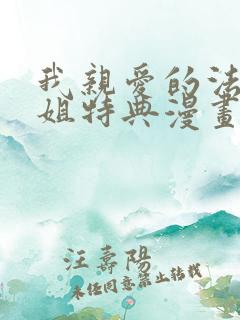 我親愛的法
姐特典漫畫
汪壽陽
未經同意禁止轉載